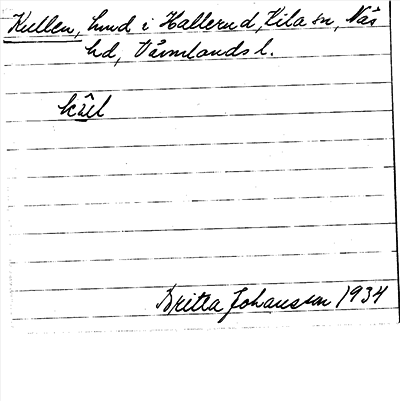 Kullen, hmd i Hallerud, Kila sn, Näs
hd, Värmlands l.
kûl
Britta Johansson 1934